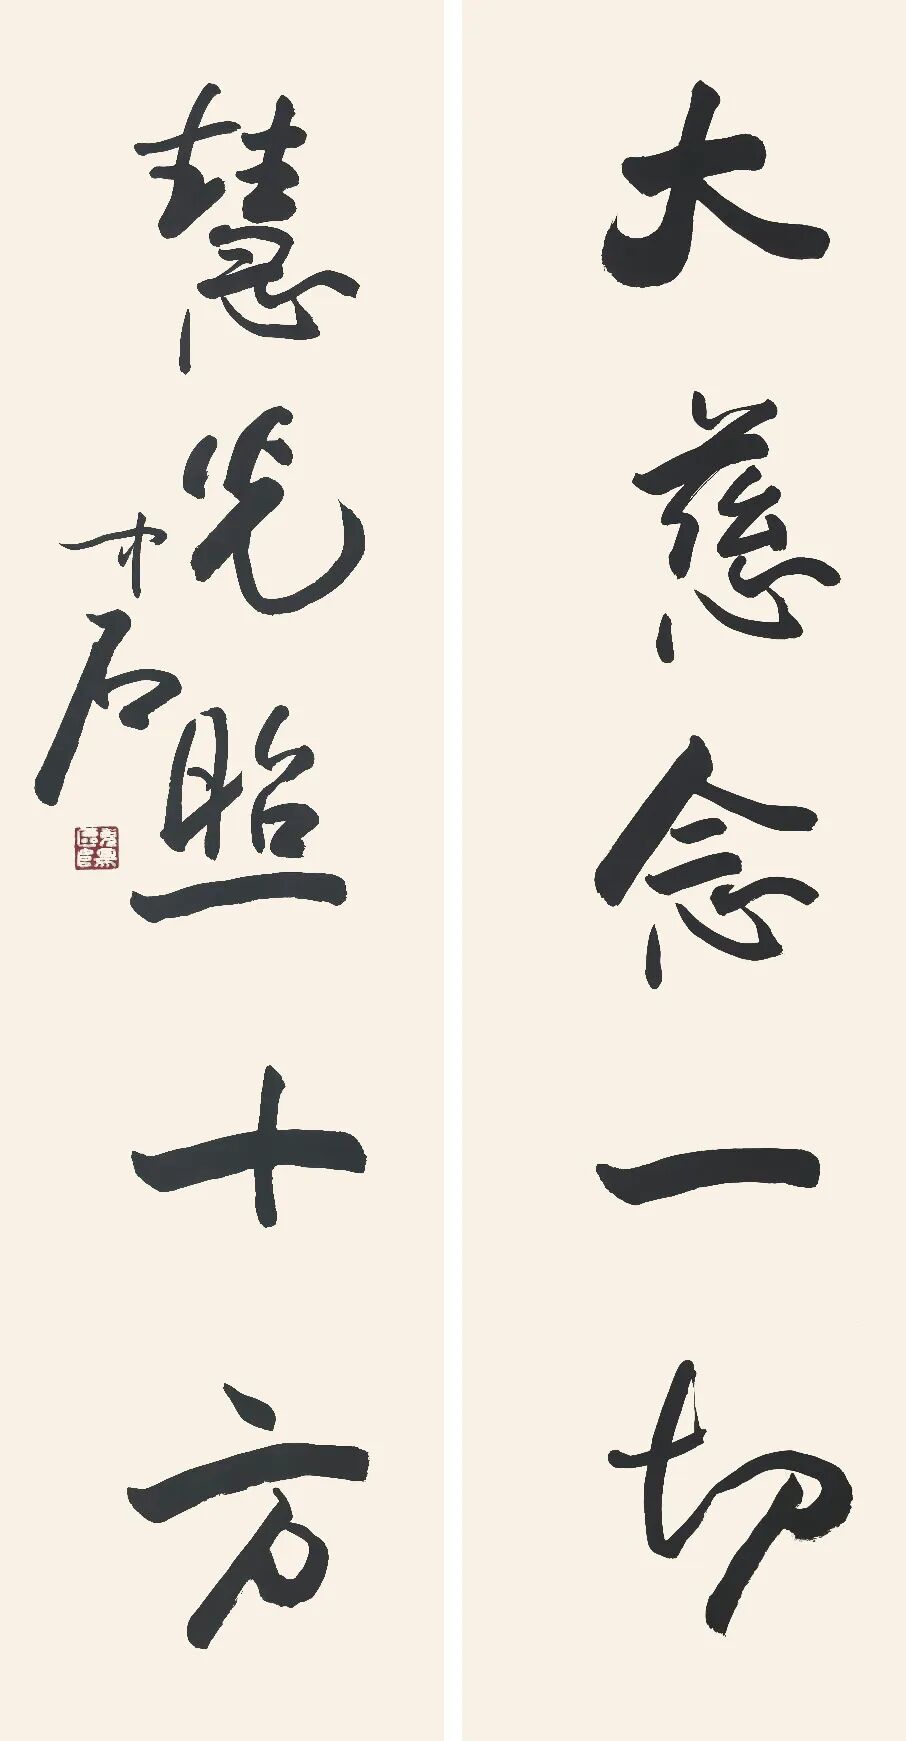 大慈念一切
慧光照十方
才石